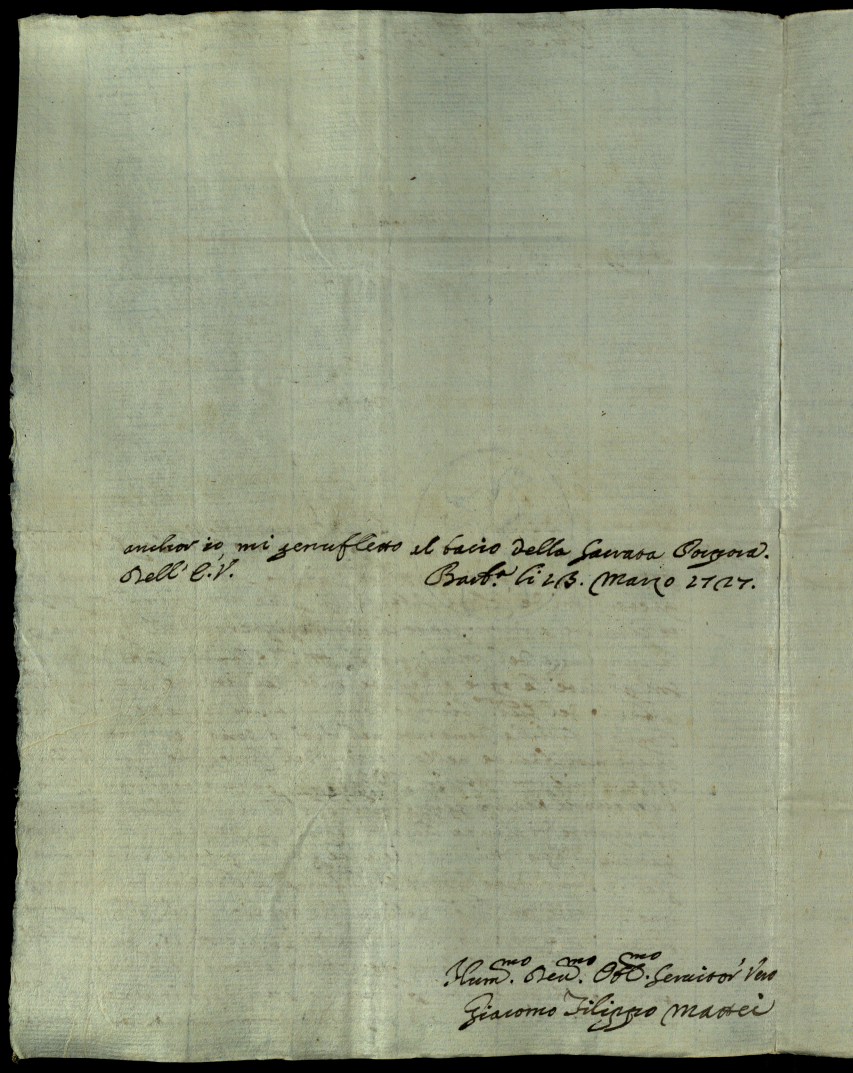 anchor io, mi genufletto al bacio della Sacrata Porpora.
Dell' E. V. Barb.ª li 23. Marzo 1727.
Hum.mo Deu.mo Obl.mo Seruitor Vero
Giacomo Filippo Mattei